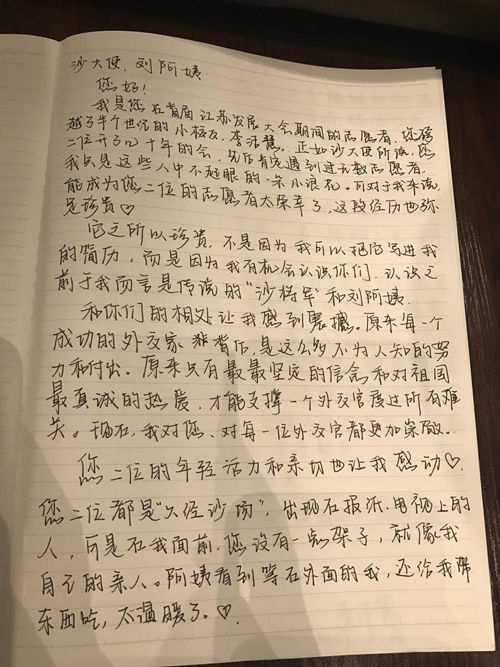 沙大使、刘阿姨
您好！
我是您在首届江苏发展大会期间的志愿者，您跨
越了半个世纪的小校友，李洁慧。正如沙大使所说，您
二位开了几十年的会，先后肯定遇到过无数志愿者，
我只是这些人中不起眼的一朵小浪花。可对于我来说，
能成为您二位的志愿者太荣幸了，这段经历也弥
足珍贵♡
它之所以珍贵，不是因为我可以把它写进我
的简历，而是因为我有机会认识你们，认识之
前于我而言是传说的“沙将军”和刘阿姨。
和你们的相处让我感到震撼。原来每一个
成功的外交家背后，是这么多不为人知的努
力和付出。原来只有最最坚定的信念和对祖国
最真诚的热爱，才能支撑一个外交官度过所有难
关。现在，我对您、对每一位外交官都更加崇敬。
您二位的年轻活力和亲切也让我感动♡.
您二位都是“久经沙场”，出现在报纸、电视上的
人，可是在我面前，您没有一点架子，就像我
自己的亲人。阿姨看到等在外面的我，还给我带
东西吃，太温暖了。♡.